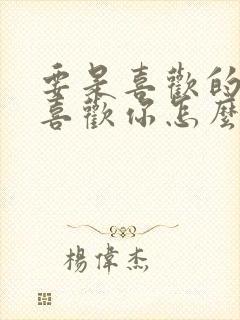 要是喜歡的
喜歡你怎麼
楊偉杰